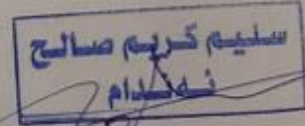 سليم كريم صالح
ئەندام